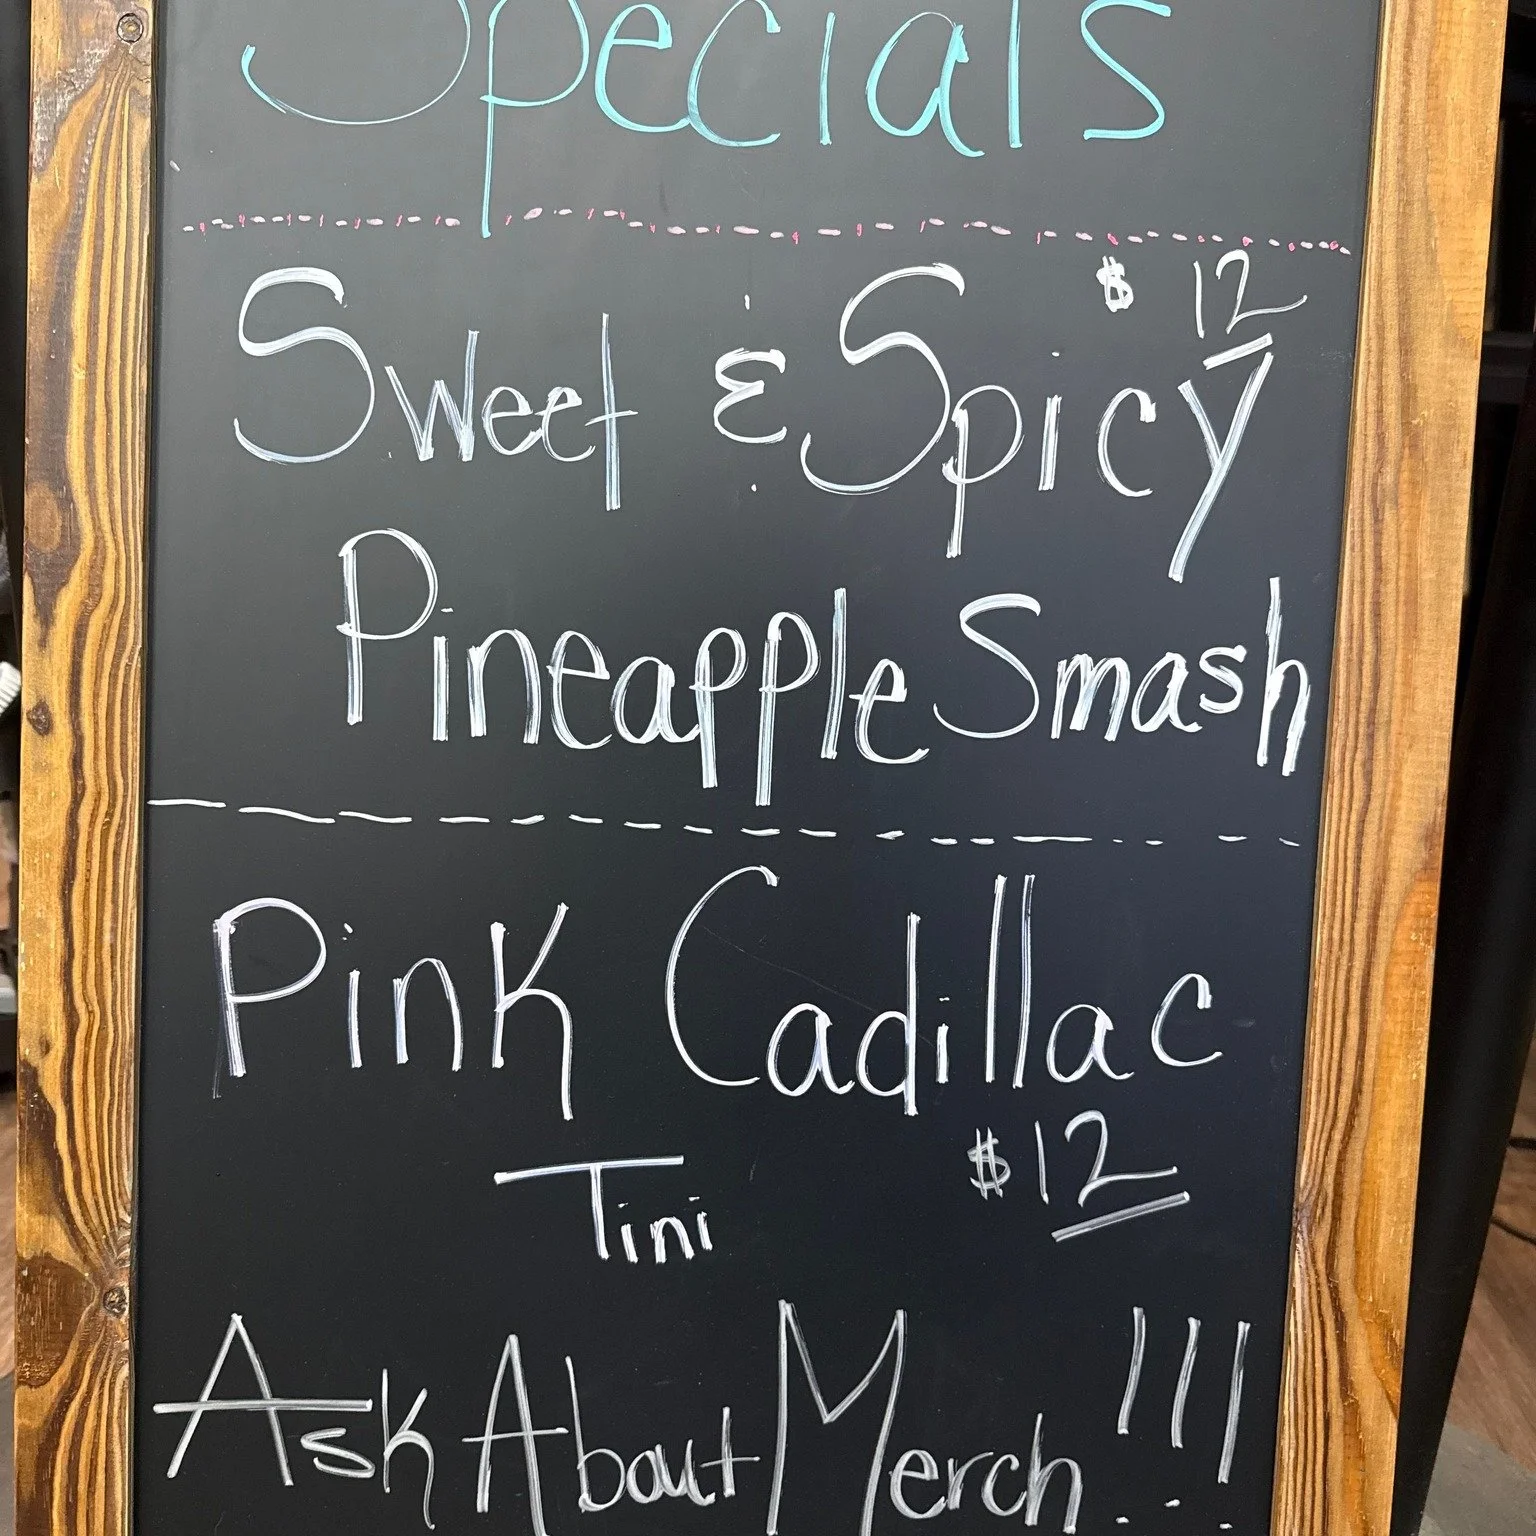 Specials
$ 12
Sweet & Spicy
Pineapple Smash
Pink Cadillac
Tini $12
Ask About Merch!!!